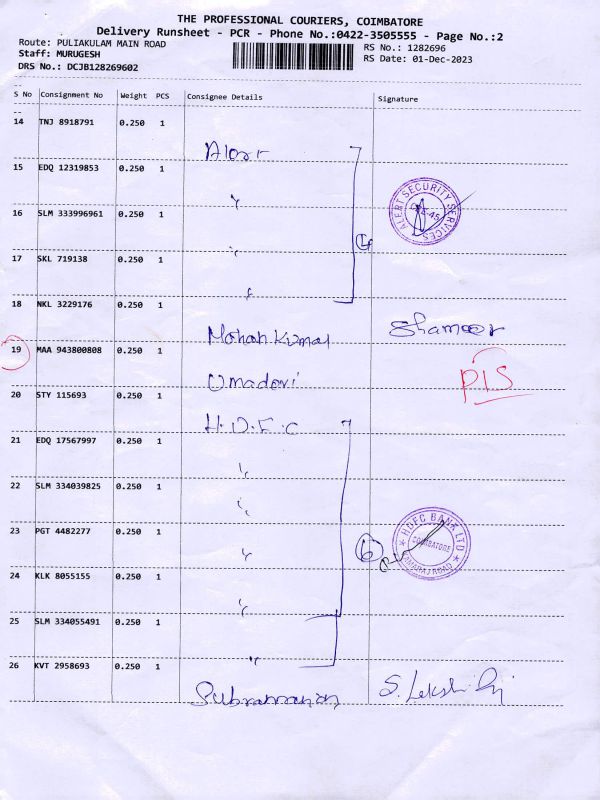 THE PROFESSIONAL COURIERS, COIMBATORE
Delivery Runsheet - PCR - Phone No.:0422-3505555 - Page No.:2
Route: PULIAKULAM MAIN ROAD
RS No.: 1282696
Staff: MURUGESH
RS Date: 01-Dec-2023
DRS No.: DCJB128269602
S No Consignment No Weight PCS Consignee Details Signature
14 TNJ 8918791 0.250 1
Alert
15 EDQ 12319853 0.250 1
"
ALERT SECURITY SERVICES
CBE-45
16 SLM 333996961 0.250 1
"
4
17 SKL 719138 0.250 1
"
18 NKL 3229176 0.250 1
Mohan Kumar Shameer
19 MAA 943800808 0.250 1
Umadevi PIS
20 STY 115693 0.250 1
H.D.F.C
21 EDQ 17567997 0.250 1
"
22 SLM 334039825 0.250 1
"
23 PGT 4482277 0.250 1
"
6
HDFC BANK LTD
COIMBATORE
KAMARAJ ROAD
24 KLK 8055155 0.250 1
"
25 SLM 334055491 0.250 1
"
26 KVT 2958693 0.250 1
Subramanian S.